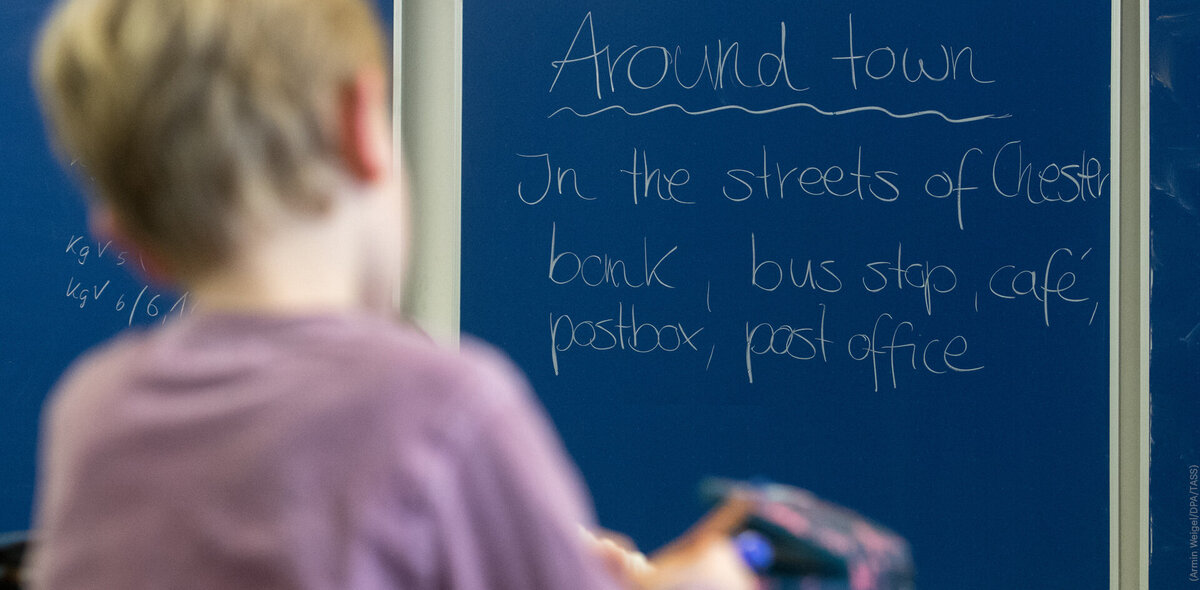 Around town
In the streets of Chester
bank, bus stop, café,
postbox, post office
KgV 5
KgV 6/6,
(Armin Weigel/DPA/TASS)